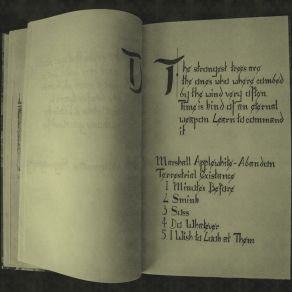 The strongest trees are
the ones who where curded
by the wind very often
Time is kind of an eternal
weapon Learn to command
it
Marshall Applewhite - Abandon
Terrestrial Existance
1 Minutes Before
2 Smink
3 Suss
4 Do Whatever
5 I Wish to Look at Them